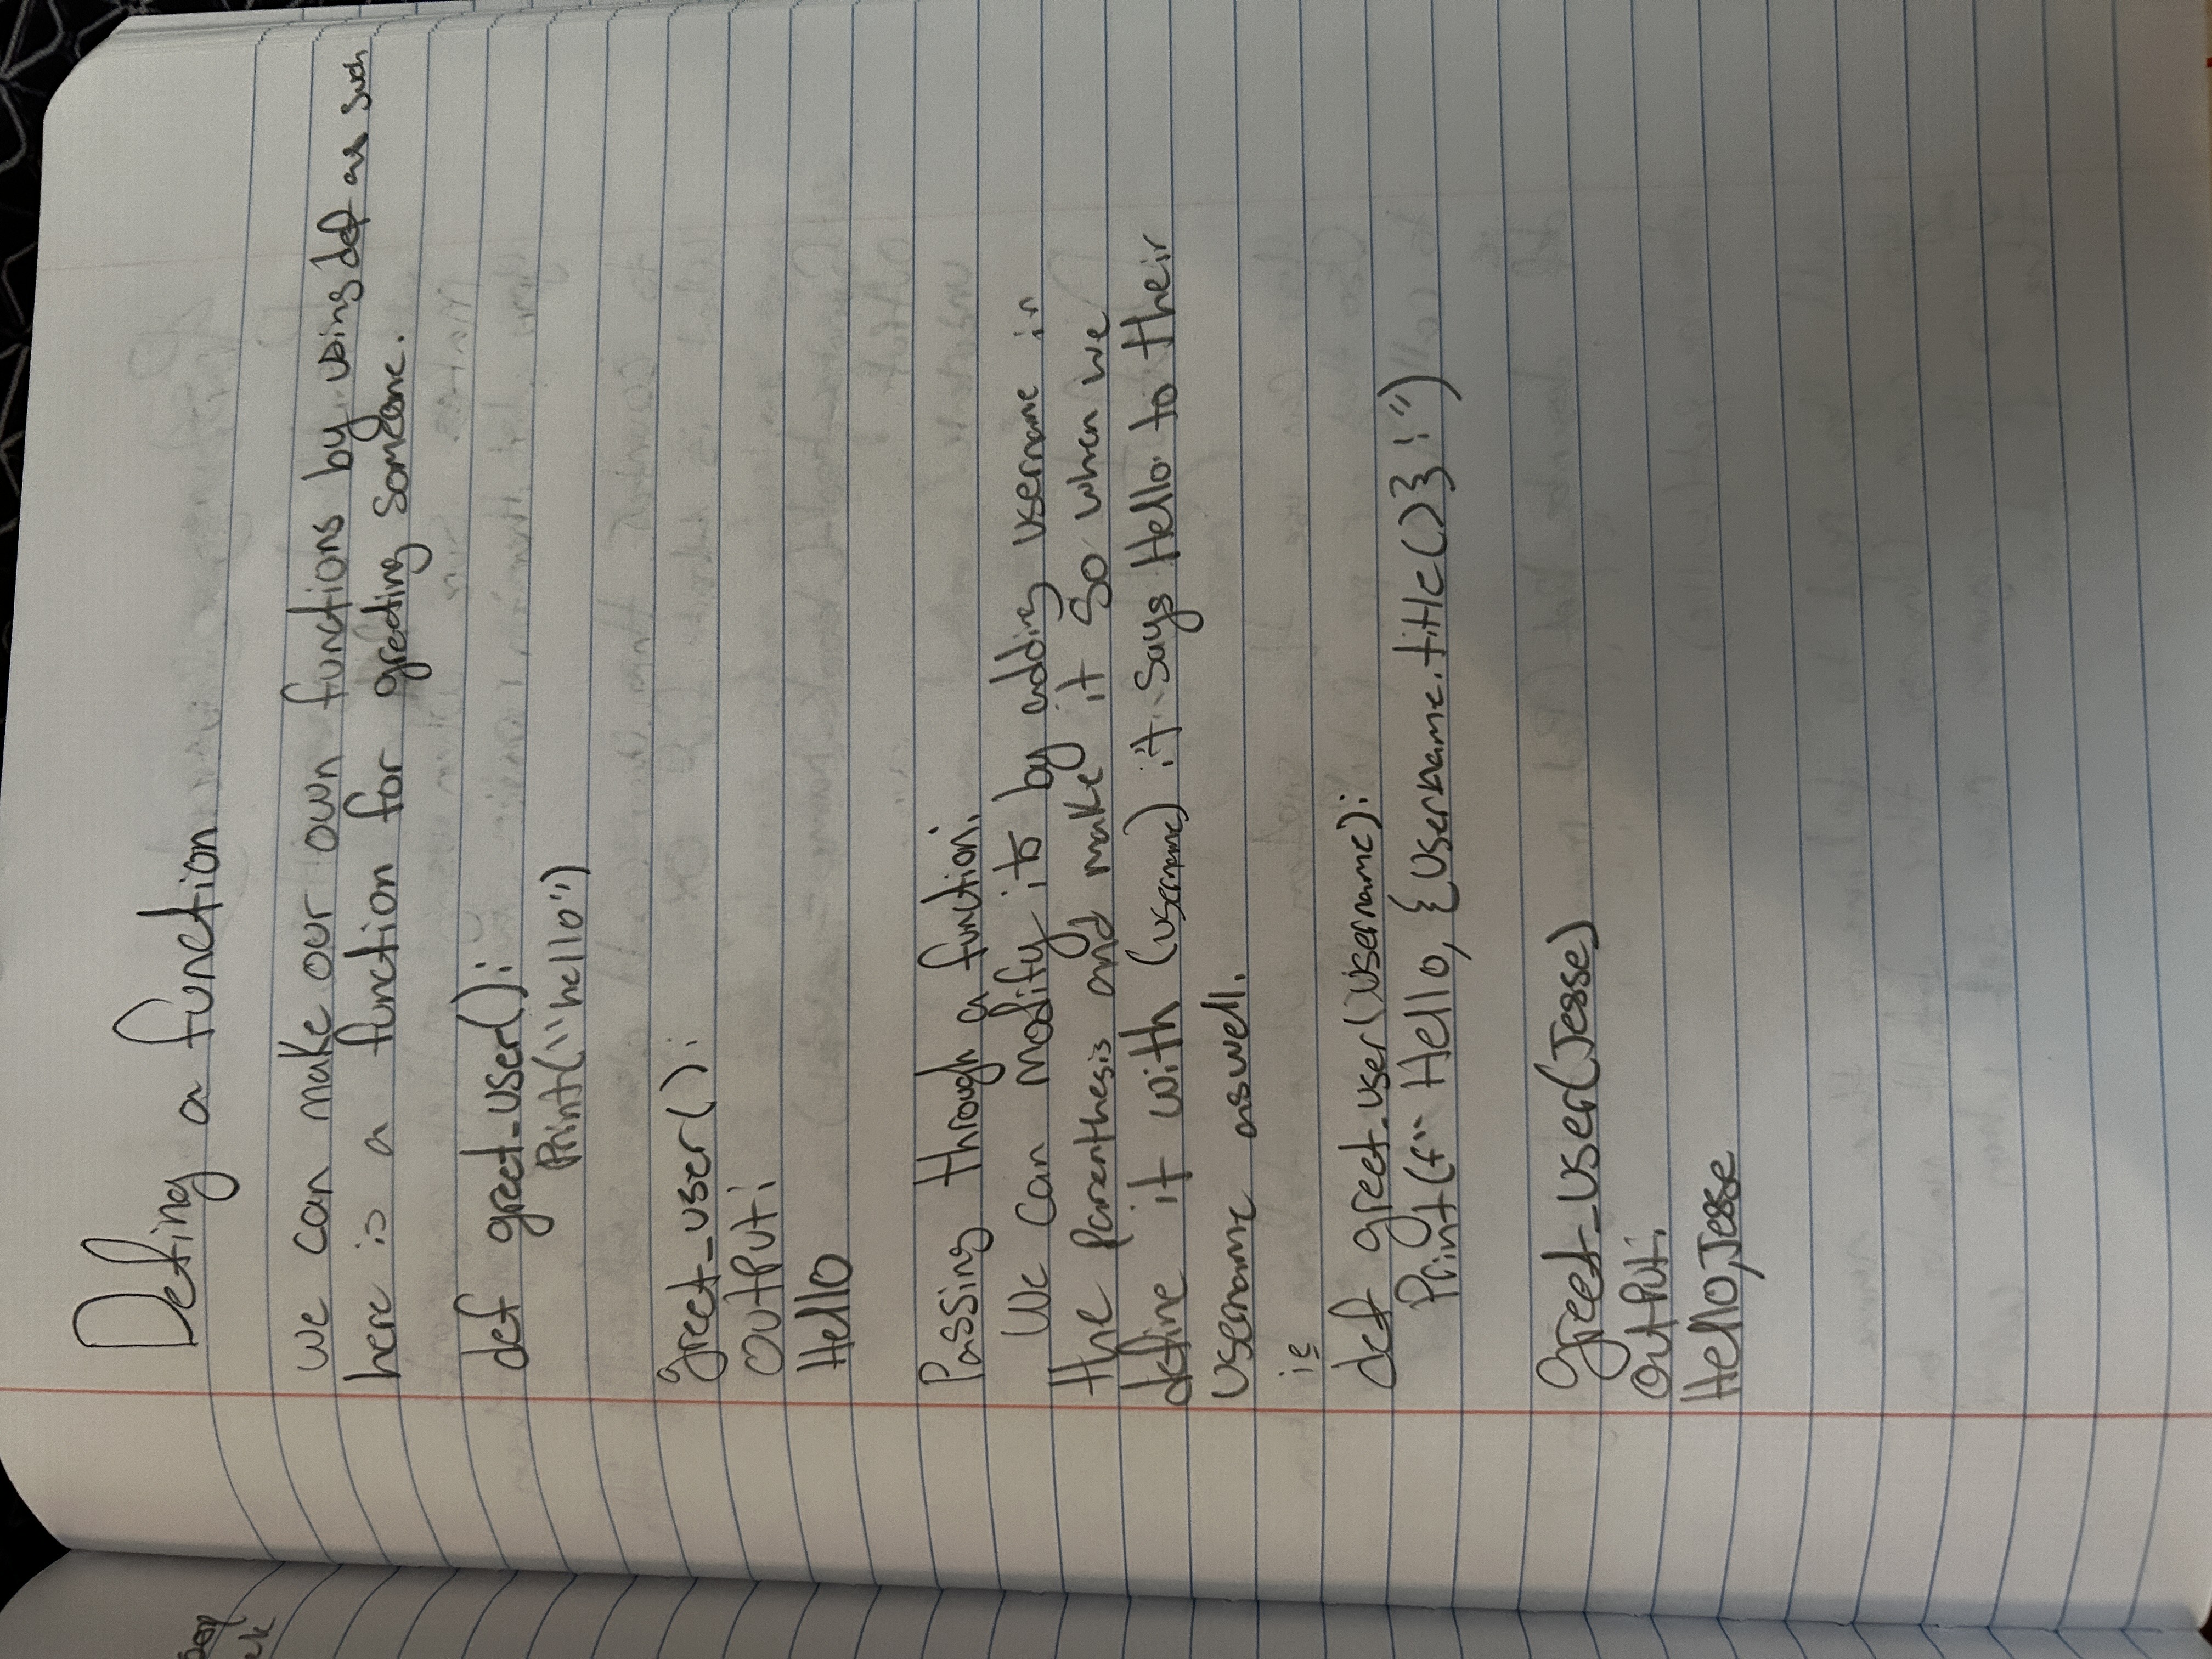 Defing a function
we can make our own functions by using def as such
here is a function for greeting someone.
def greet_user():
Print("hello")
greet_user():
OutPut:
Hello
Passing through a function:
We can modify it by adding username in
the parenthesis and make it so when we
define it with (username) it says Hello to their
Username aswell.
ie
def greet_user(username):
Print(f"Hello, {Username.title()}!")
greet_user(Jesse)
OutPut:
Hello, Jesse